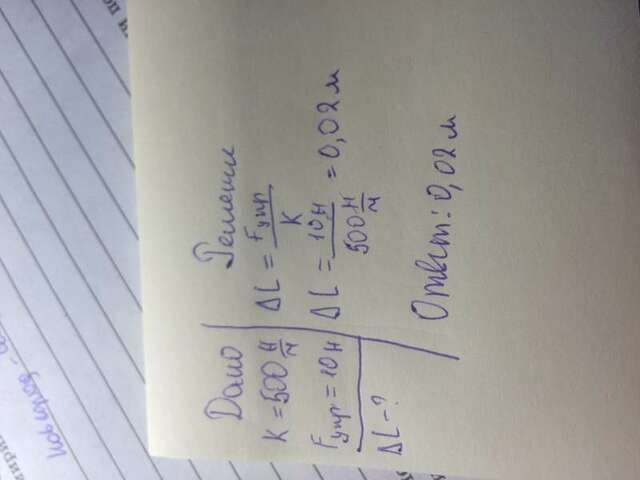 Дано
K = 500 Н/м
Fупр = 10 Н
ΔL - ?
Решение
ΔL = Fупр/K
ΔL = 10 Н/500 Н/м = 0,02 м
Ответ: 0,02 м